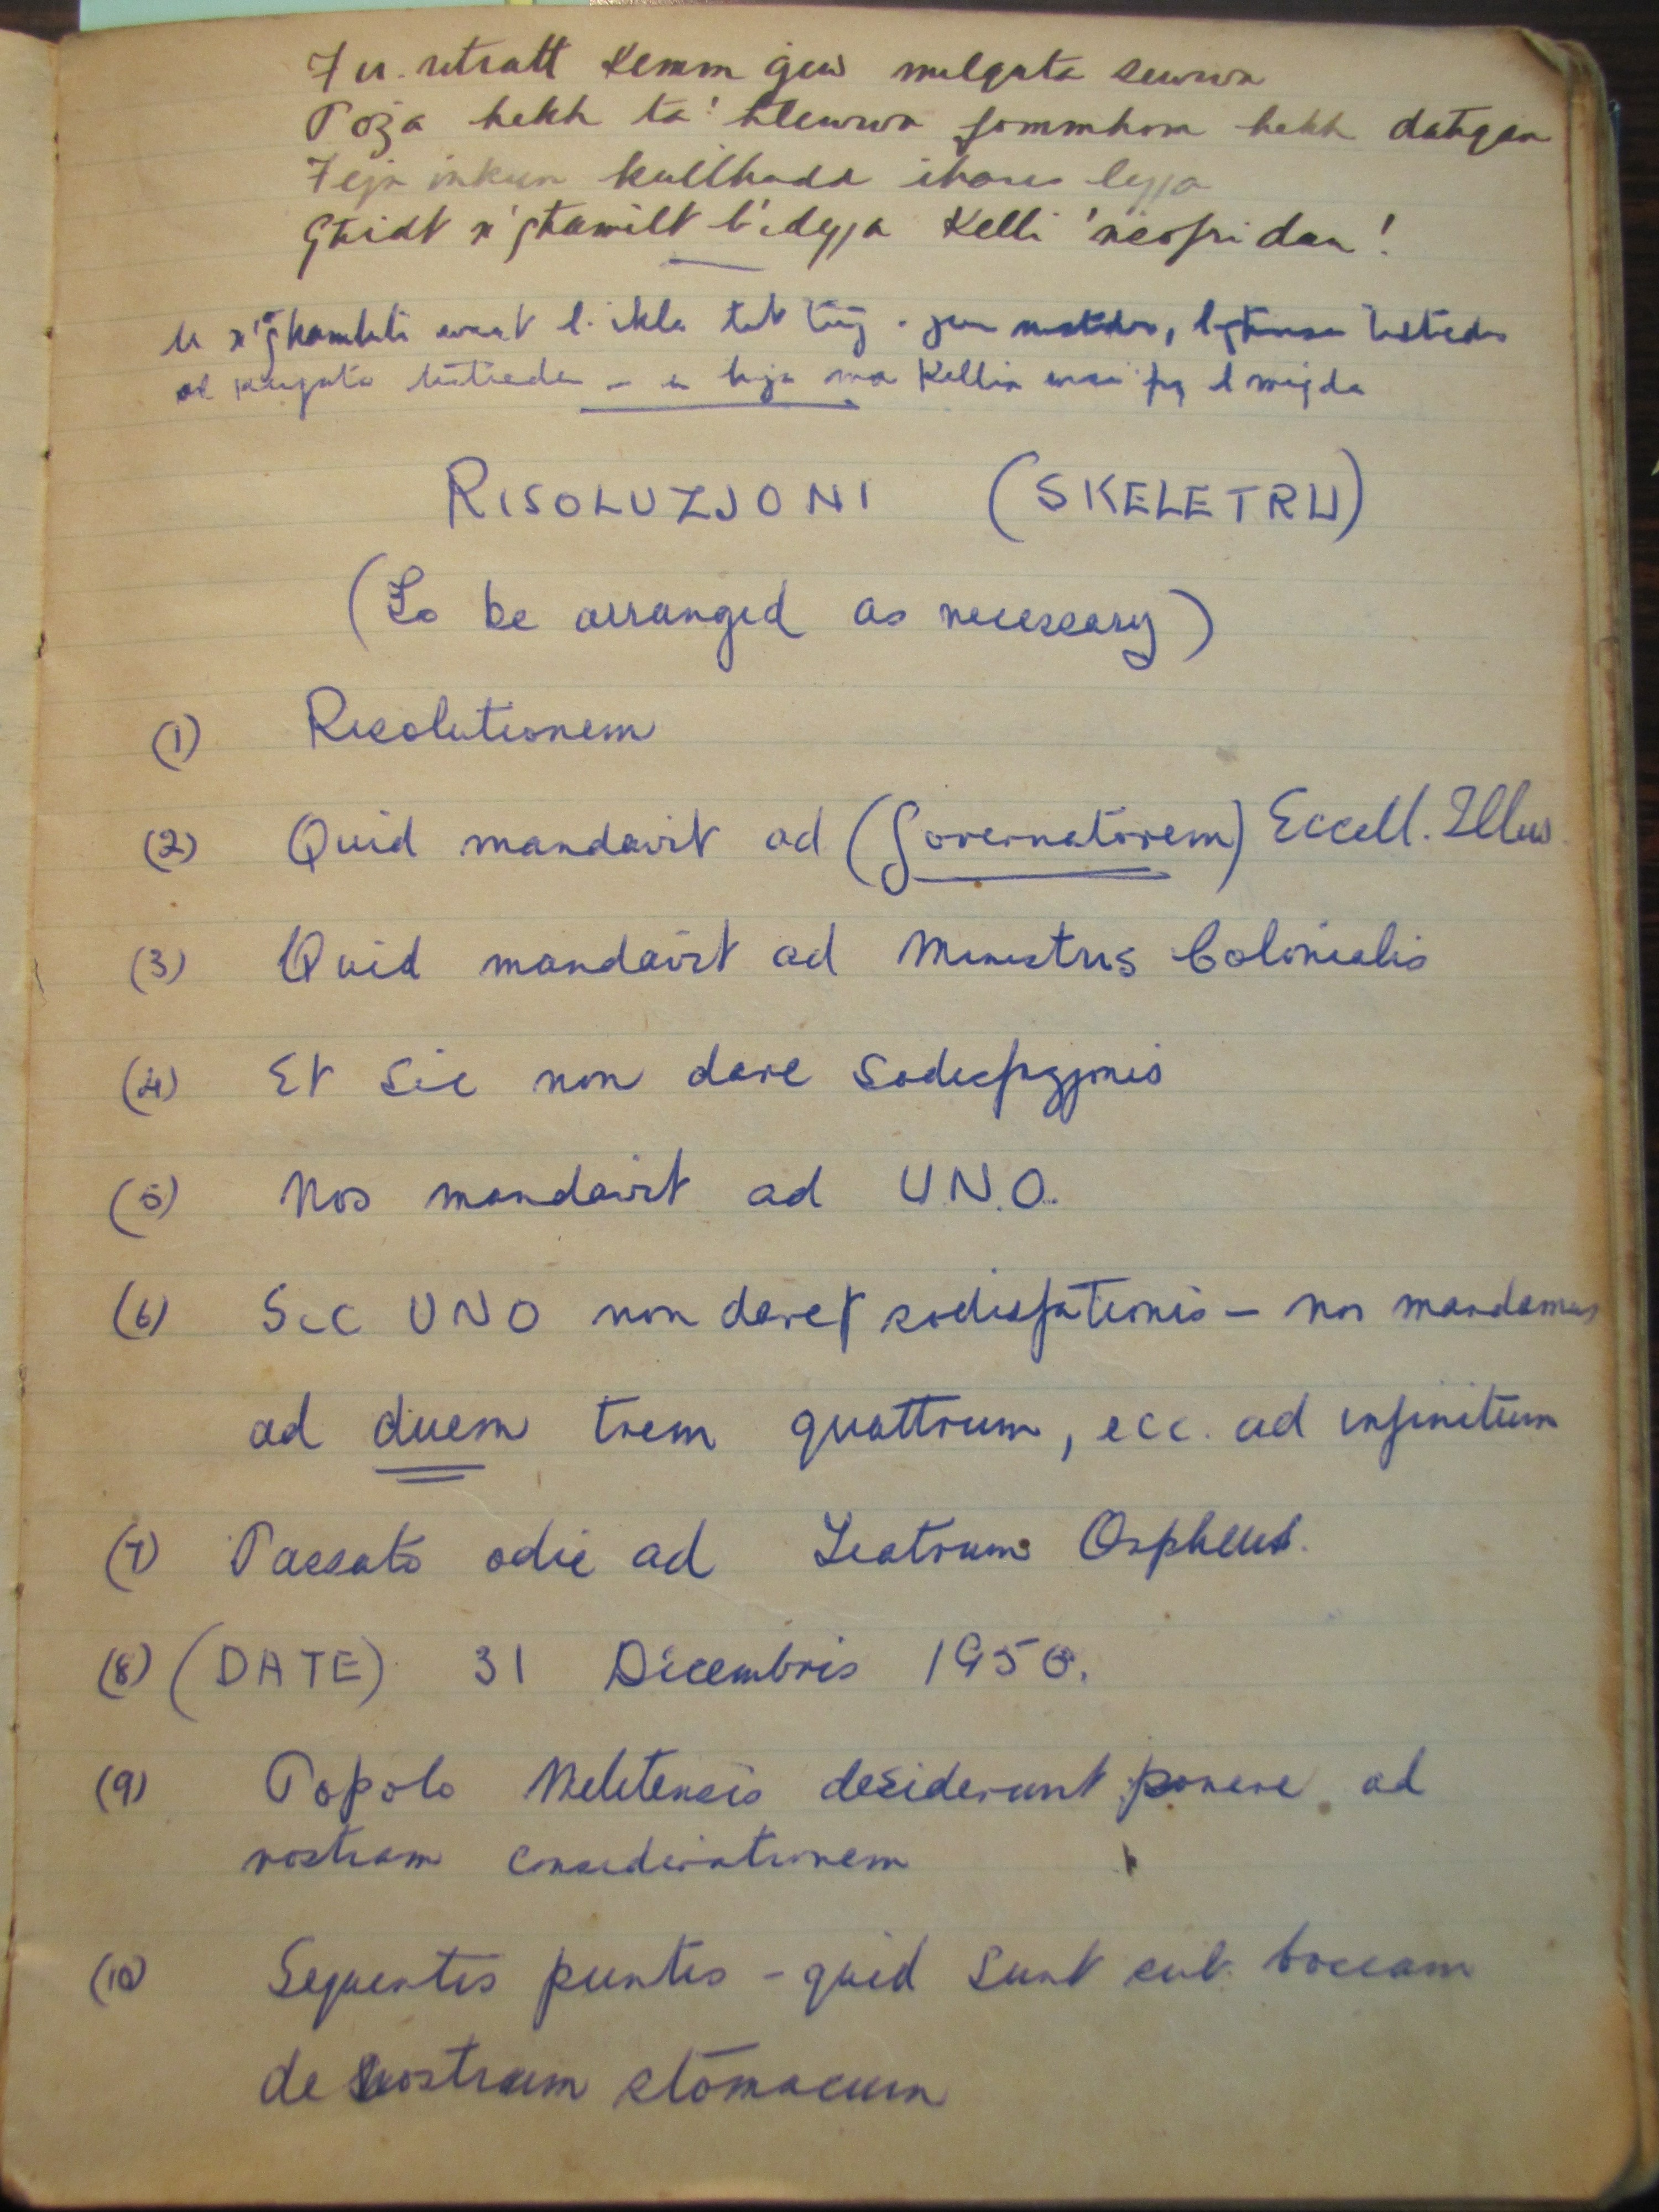 u ritratt Kemm ġew milquta sewwa
Poża hekk ta' ħlewwa fommhom hekk datqan
Feja inkun kullħadd iħares lejja
Għidt x'għamilt b'idejja Kelli
u x' wаħt l. ikla tat
u hija ma Kellix
RISOLUZJONI (SKELETRU)
(To be arranged as necessary)
(1) Resolutionem
(2) Quid mandavit ad (Governatorem) Eccell. Illus.
(3) Quid mandavit ad Ministris Colonialis
(4) Et Sic non dare
(5) Nos mandavit ad U.N.O.
(6) Sic UNO non daret sodisfationis - nos mandamus
ad duem trem quattrum, ecc. ad infinitum
(7) Passato odie ad Teatrum Orpheus.
(8) (DATE) 31 Dicembris 1950.
(9) Popolo Melitensis desiderunt ponere ad
nostram considerationem
(10) Sequentis puntis - quid Sunt sub. boccam
de nostrum stomacum